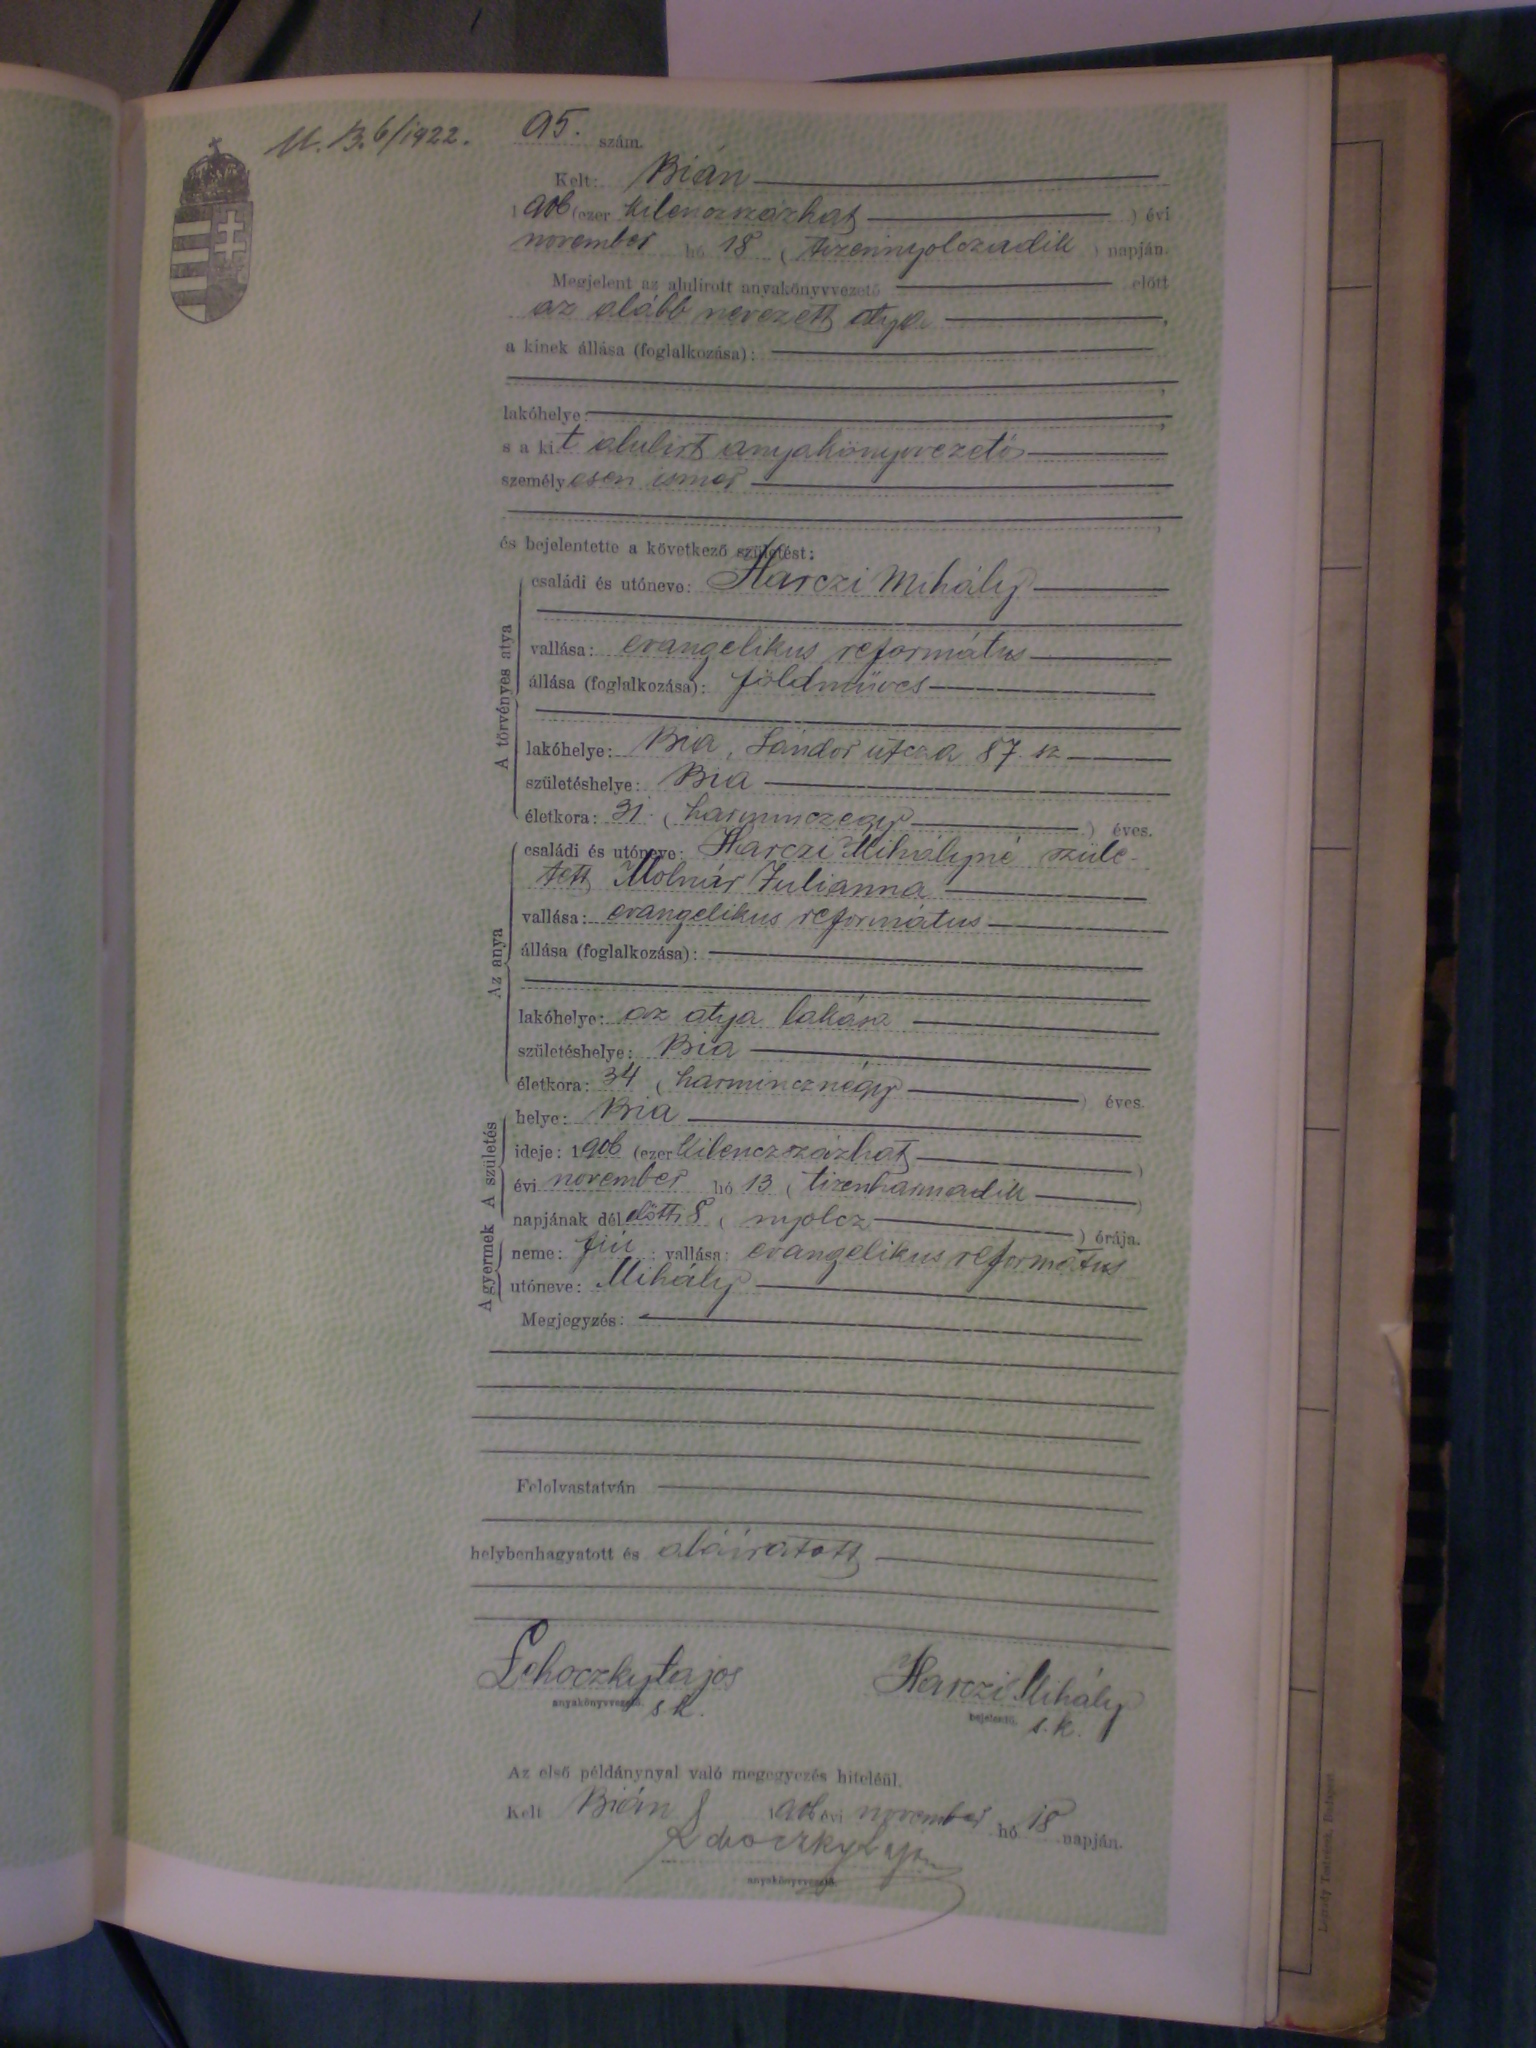 M. B. 6/1922.
95. szám.
Kelt: Bián
1906 (ezer kilenczszázhat ) évi
november hó 18 ( tizennyolczadik ) napján.
Megjelent az alulirott anyakönyvvezető előtt
az alább nevezett atya ,
a kinek állása (foglalkozása):
lakóhelye:
s a kit alulirt anyakönyvvezető
személyesen ismer
és bejelentette a következő születést:
A törvényes atya
családi és utóneve: Harczi Mihály
vallása: evangelikus református
állása (foglalkozása): földmüves
lakóhelye: Bia, Sándor utcza 87. sz
születéshelye: Bia
életkora: 31 ( harminczegy ) éves.
Az anya
családi és utóneve: Harczi Mihályné szüle-
tett Molnár Julianna
vallása: evangelikus református
állása (foglalkozása):
lakóhelye: az atya lakása
születéshelye: Bia
életkora: 34 ( harmincznégy ) éves.
A születés
helye: Bia
ideje: 1906 (ezer kilenczszázhat )
évi november hó 13 ( tizenharmadik )
napjának délelőtt 8 ( nyolcz ) órája.
A gyermek
neme: fiú ; vallása: evangelikus református
utóneve: Mihály
Megjegyzés:
Felolvastatván
helybenhagyatott és aláiratott
Lehoczky Lajos Harczi Mihály
anyakönyvvezető. s k. bejelentő. s. k.
Az első példánynyal való megegyezés hiteléül.
Kelt Bián 1906 évi november hó 18 napján.
Lehoczky Lajos
anyakönyvvezető.
Légrády Testvérek, Budapest